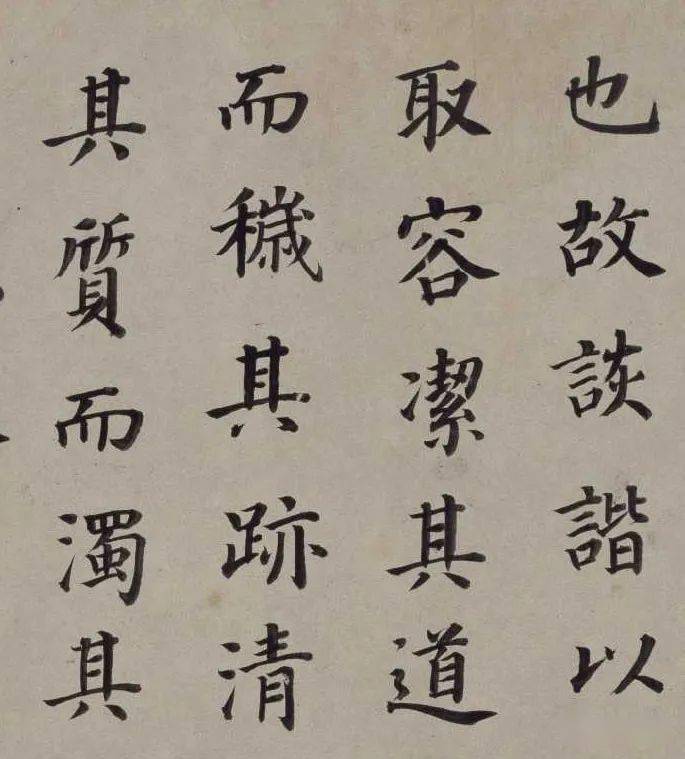 也故談諧以
取容潔其道
而穢其跡清
其質而濁其